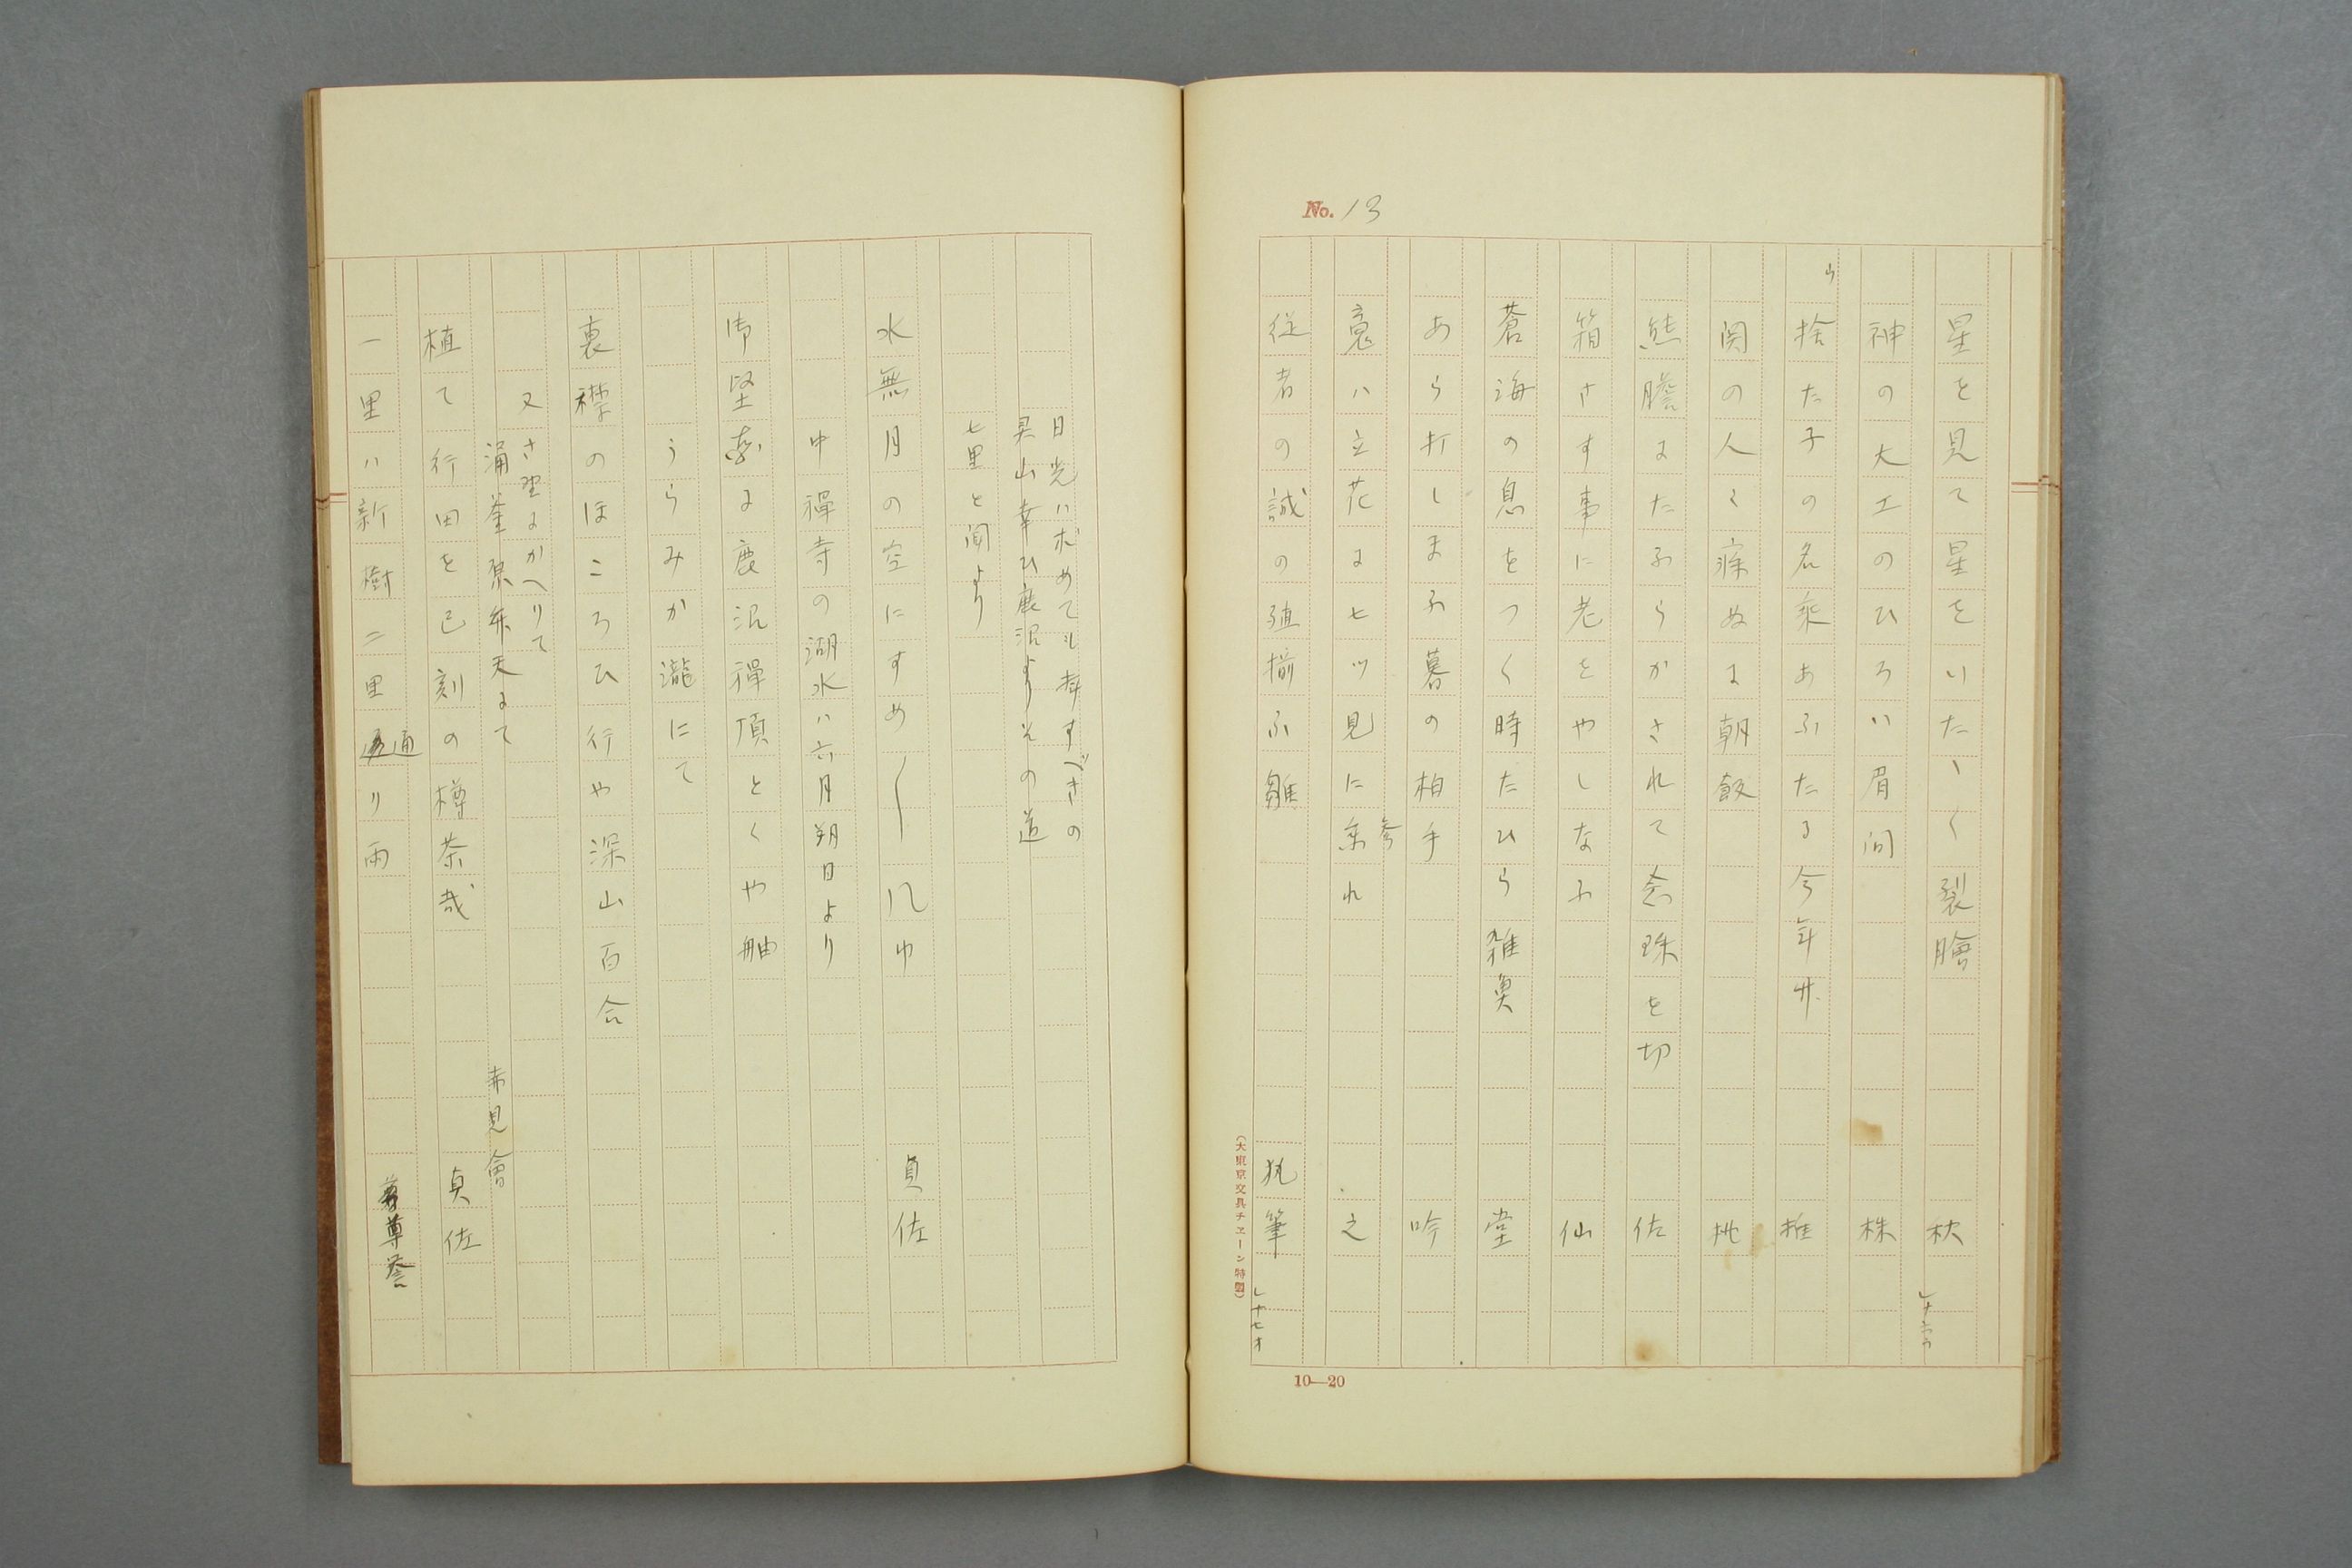 No. 13
星を見て星をいたゞく裂膾 秋
」十六ウ
神の大工のひろい眉間 株
ウ
捨た子の名乗あふたる今年廾 推
関の人〱痳ぬに朝飯 桃
熊膽にたふらかされて念珠を切 佐
箱さす事に老をやしなふ 仙
蒼海の息をつく時たひら雑奥 堂
あら打しまふ暮の柏手 吟
嵬ハ立花に七ツ見に参れ 之
従者の誠の殖揃ふ雛 执筆
」十七オ
(大東京文具チヱーン特製)
10—20
日光ハ求めても拝すべきの
具山幸ひ鹿沼よりその道
七里と聞より
水無月の空にすめ〱几ゆ 貞佐
中禪寺の湖水ハ六月朔日より
御堅劵に鹿沼禪頂とくや舳
うらみか瀧にて
裏襟のほころひ行や深山百合
又さ野にかへりて
涌釜原弁天にて 赤見會
植て行田を巳刻の樽茶哉 貞佐
一里ハ新樹二里通り雨 尊誉